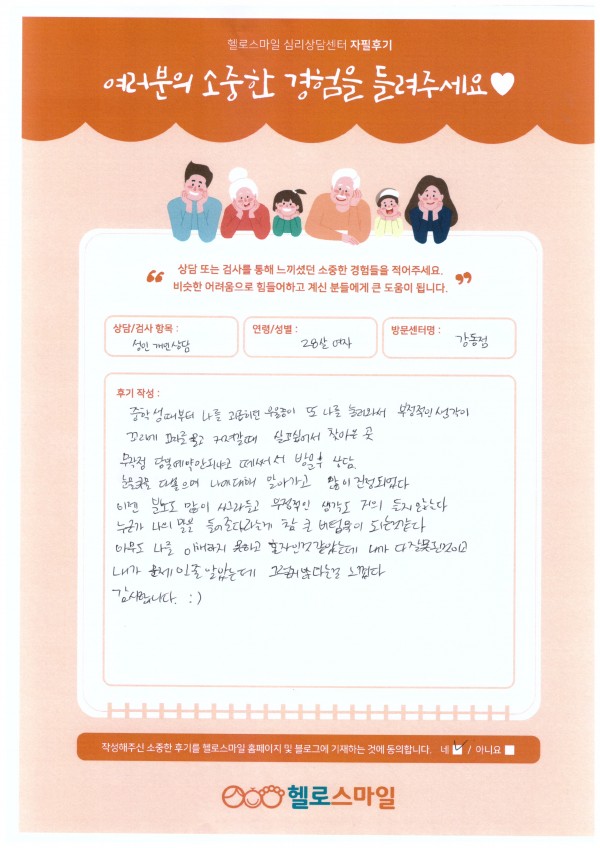 헬로스마일 심리상담센터 자필후기
여러분의 소중한 경험을 들려주세요
상담 또는 검사를 통해 느끼셨던 소중한 경험들을 적어주세요.
비슷한 어려움으로 힘들어하고 계신 분들에게 큰 도움이 됩니다.
상담/검사 항목 :
성인 개인상담
연령/성별 :
28살 여자
방문센터명 :
강동점
후기 작성 :
중학생때부터 나를 괴롭히던 우울증이 또 나를 눌러와서 부정적인 생각이
꼬리에 꼬리를 물고 커져갈때 살고싶어서 찾아온 곳
무작정 당일예약안되냐고 떼써서 방문후 상담
눈물콧물 다쏟으며 나에대해 알아가고 많이 진정되었다
이젠 분노도 많이 사그라들고 부정적인 생각도 거의 들지않는다
누군가 나의 말을 들어준다라는게 참 큰 버팀목이 되는것같다
아무도 나를 이해하지 못하고 혼자인것같았는데 내가 다 잘못된것이고
내가 문제인줄 알았는데 그렇지않다는걸 느꼈다
감사합니다. :)
작성해주신 소중한 후기를 헬로스마일 홈페이지 및 블로그에 기재하는 것에 동의합니다. 네 / 아니요
헬로스마일